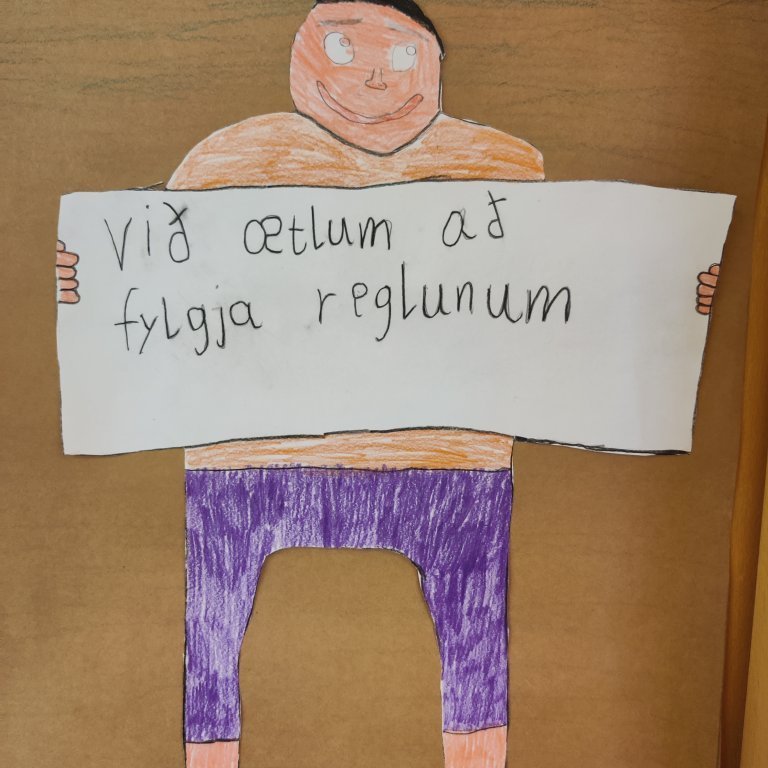 Við ætlum að
fylgja reglunum